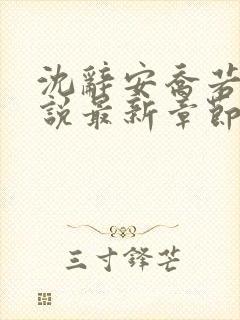 沈辭安喬若
說最新章節
三寸鋒芒